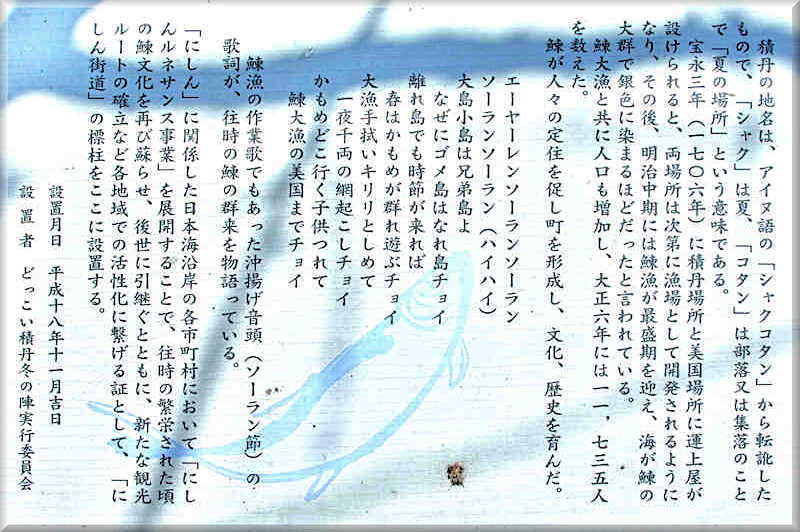 積丹の地名は、アイヌ語の「シャクコタン」から転訛した
もので、「シャク」は夏、「コタン」は部落又は集落のこと
で「夏の場所」という意味である。
宝永三年（一七〇六年）に積丹場所と美国場所に運上屋が
設けられると、両場所は次第に漁場として開発されるように
なり、その後、明治中期には鰊漁が最盛期を迎え、海が鰊の
大群で銀色に染まるほどだったと言われている。
鰊大漁と共に人口も増加し、大正六年には一一，七三五人
を数えた。
鰊が人々の定住を促し町を形成し、文化、歴史を育んだ。
エーヤーレンソーランソーラン
ソーランソーラン（ハイハイ）
大島小島は兄弟島よ
なぜにゴメ島はなれ島チョイ
離れ島でも時節が来れば
春はかもめが群れ遊ぶチョイ
大漁手拭いキリリとしめて
一夜千両の網起こしチョイ
かもめどこ行く子供つれて
鰊大漁の美国までチョイ
鰊漁の作業歌でもあった沖揚げ音頭（ソーラン節）の
歌詞が、往時の鰊の群来を物語っている。
「にしん」に関係した日本海沿岸の各市町村において「にし
んルネサンス事業」を展開することで、往時の繁栄された頃
の鰊文化を再び蘇らせ、後世に引継ぐとともに、新たな観光
ルートの確立など各地域での活性化に繋げる証として、「に
しん街道」の標柱をここに設置する。
設置月日　平成十八年十一月吉日
設置者　どっこい積丹冬の陣実行委員会